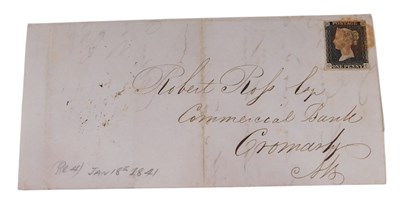 POSTAGE
ONE PENNY
Robert Ross Esq
Commercial Bank
Cromarty
JAN 18